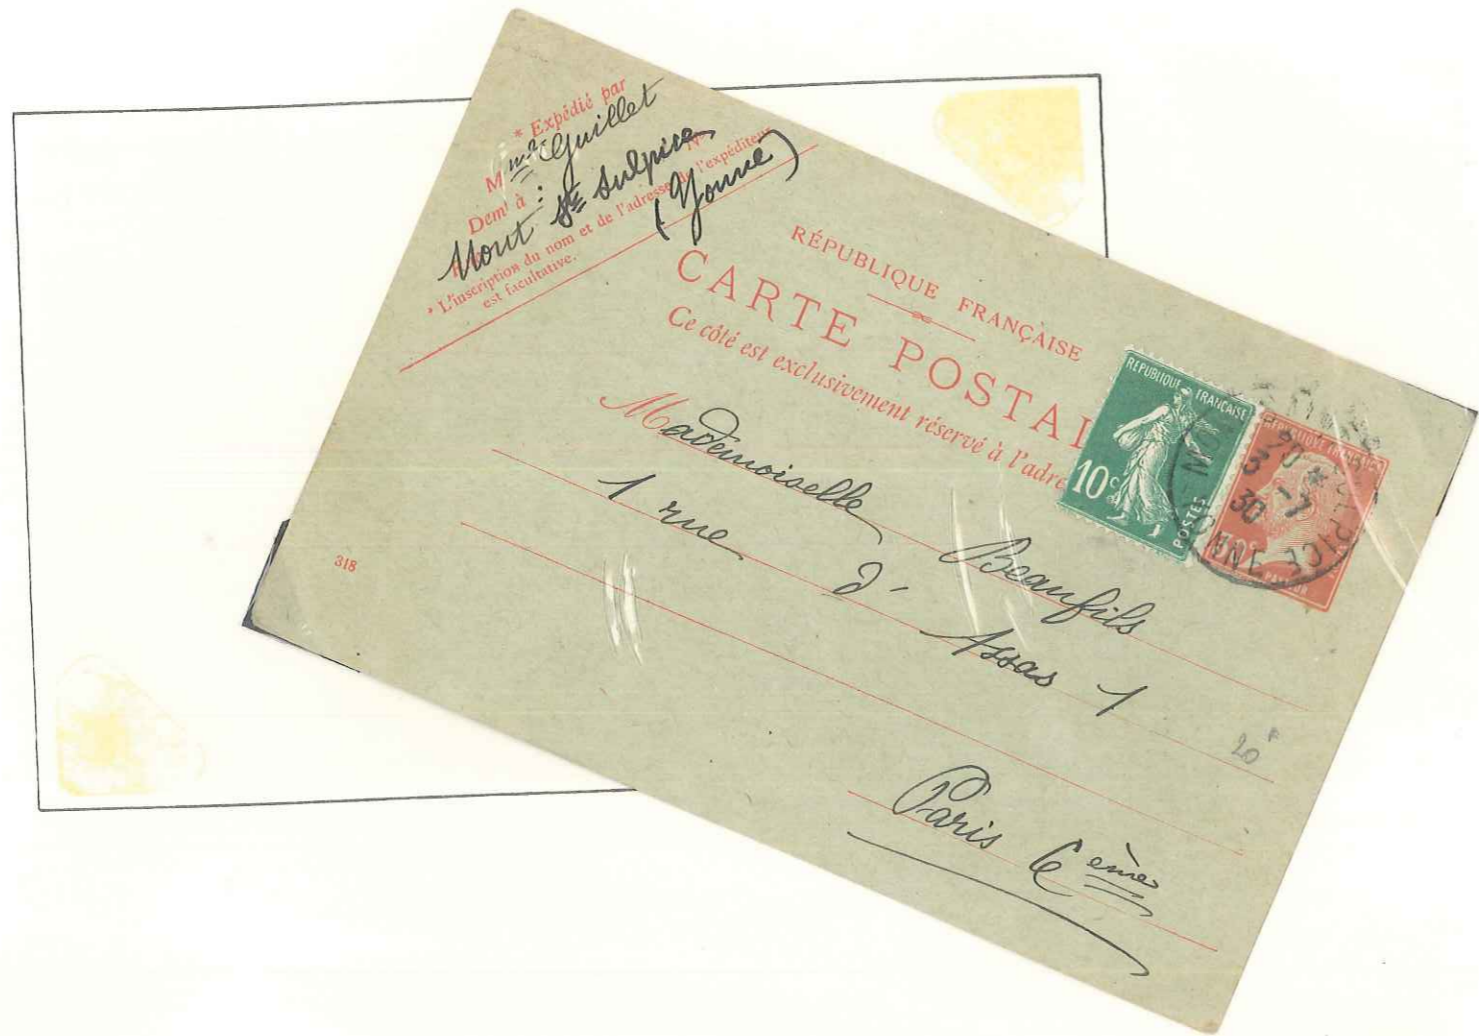 * Expédié par
Mme Guillet
Demt à :
Mont St Sulpice
(Yonne)
* L'inscription du nom et de l'adresse de l'expéditeur
est facultative.
RÉPUBLIQUE FRANÇAISE
CARTE POSTAL
Ce côté est exclusivement réservé à l'adre
REPUBLIQUE FRANÇAISE
10c
POSTES
REPUBLIQUE FRANÇAISE
30c
PASTEUR
MON SULPICE YONNE
3 -7
30
Mademoiselle Beaufils
1 rue d'Assas 1
Paris 6ème
318
20F